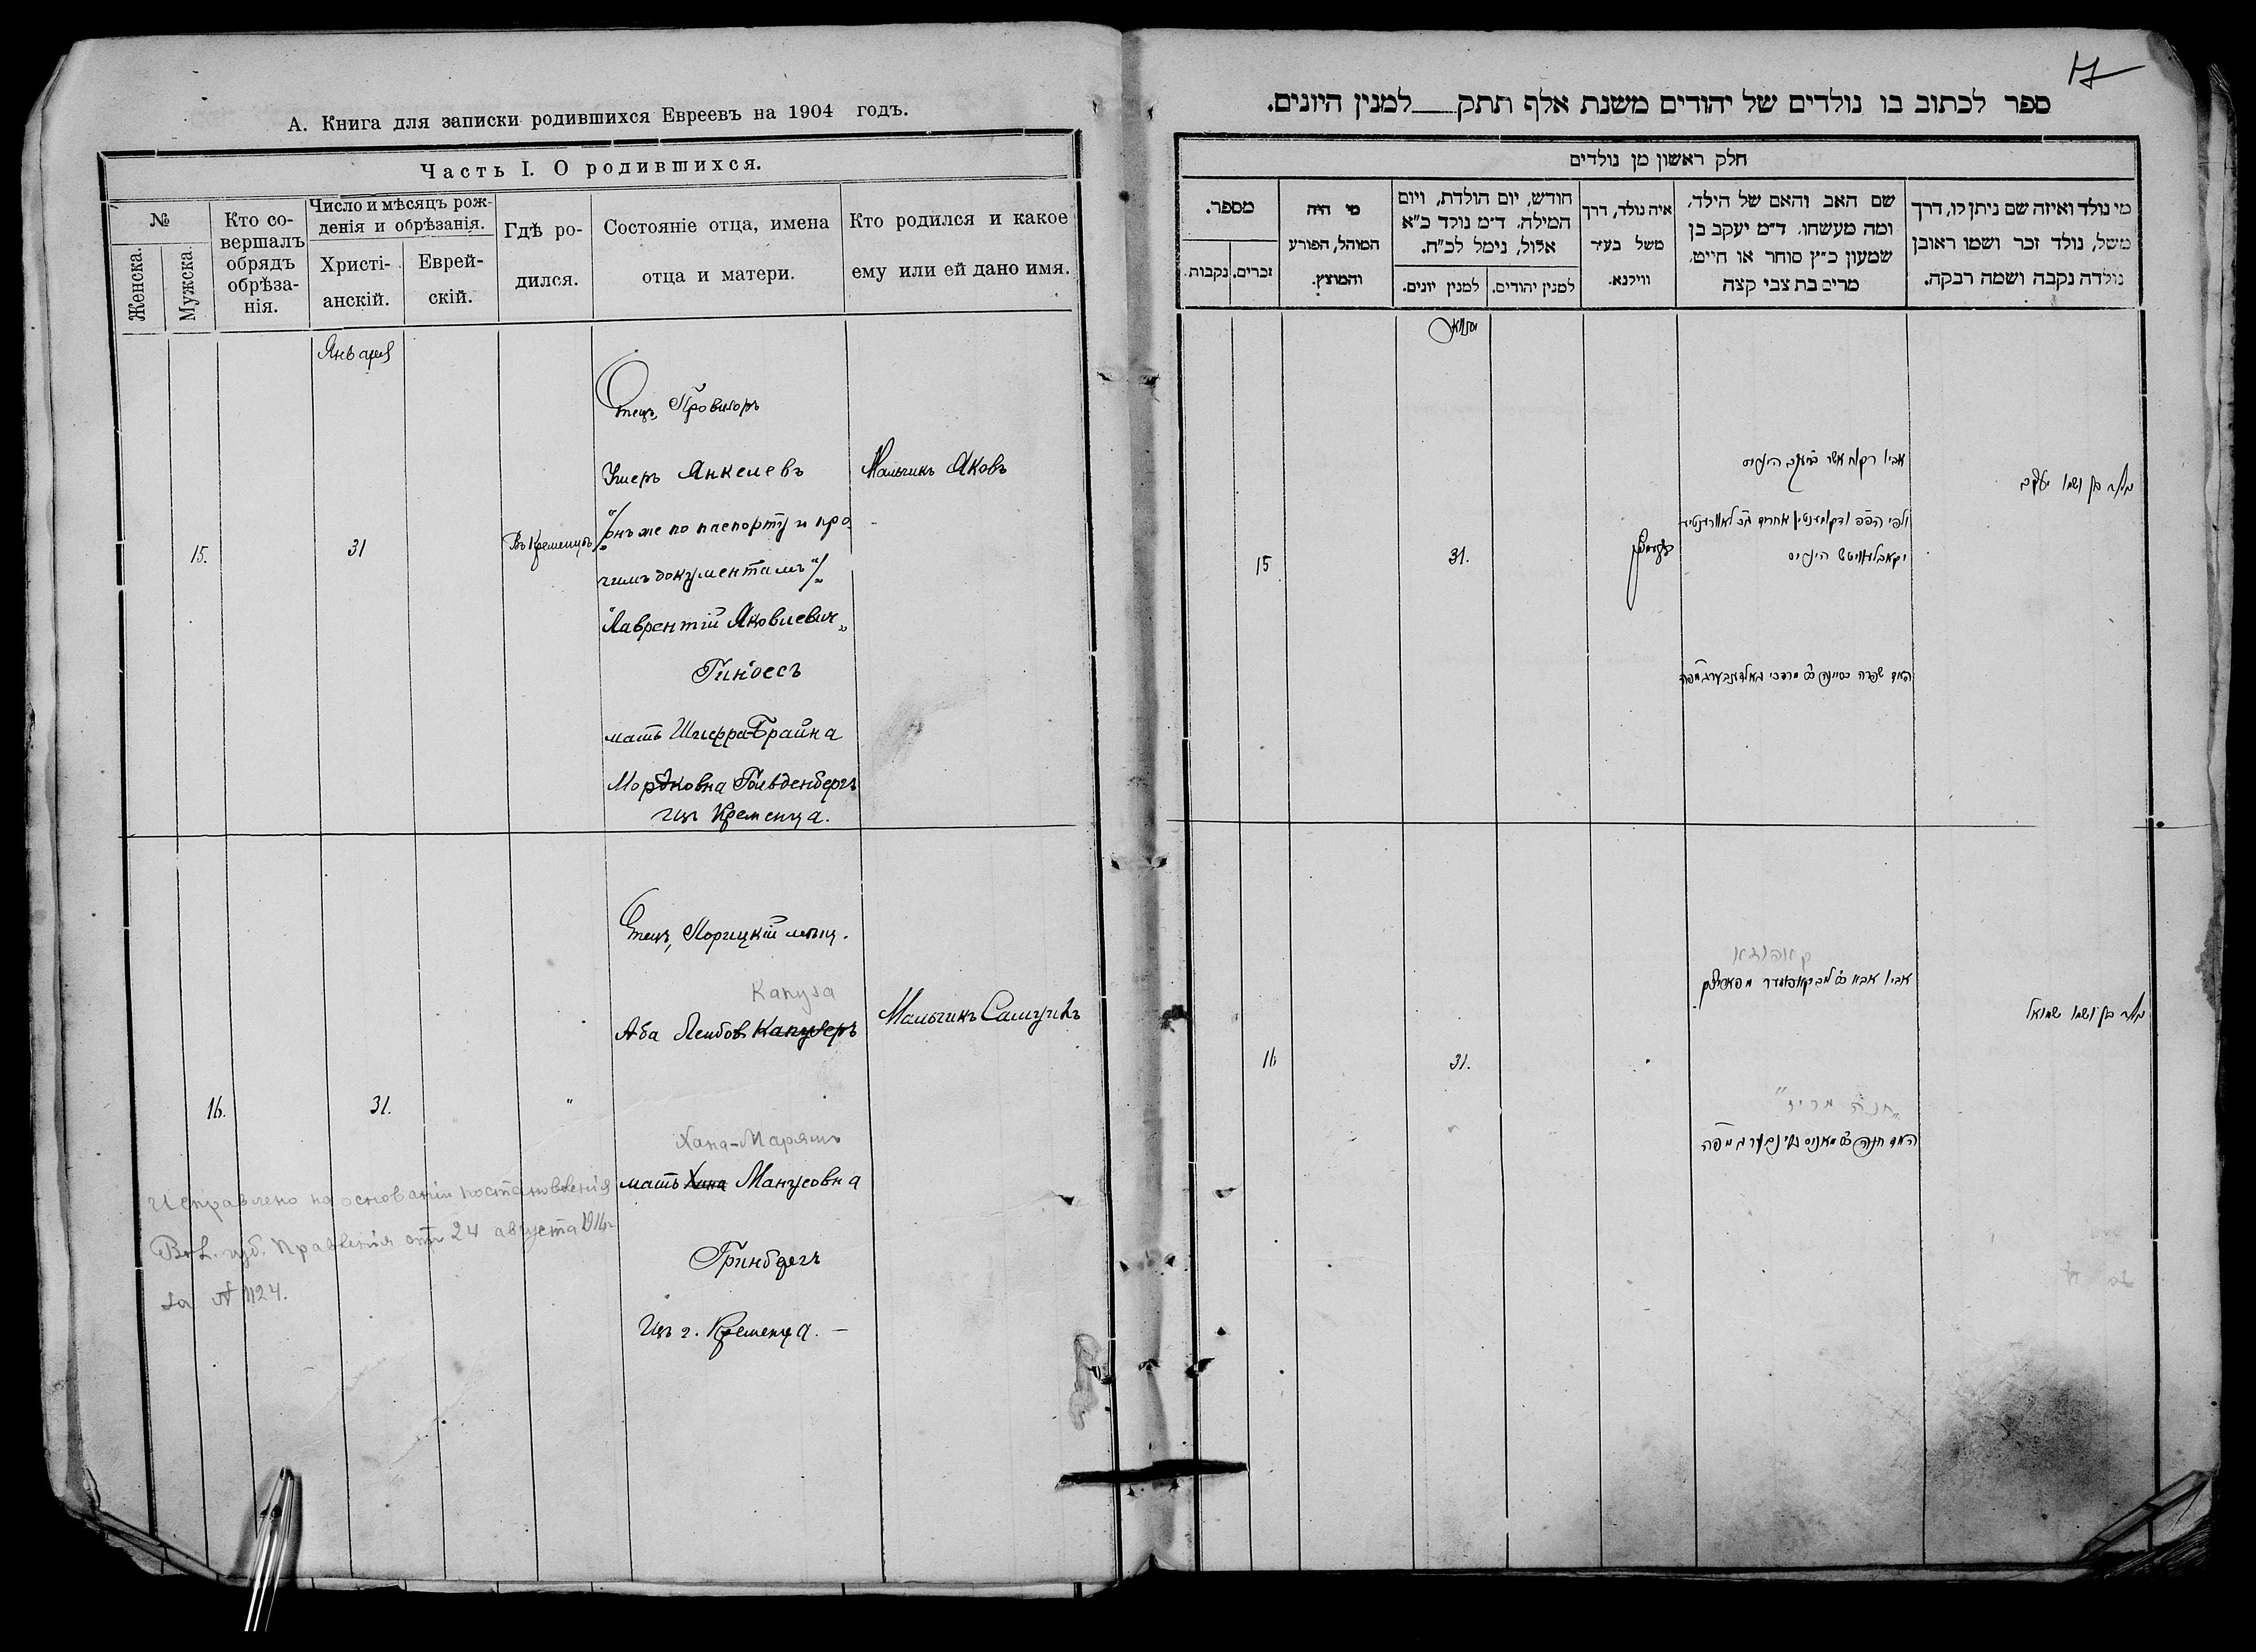 А. Книга для записки родившихся Евреевъ на 1904 годъ.
Часть I. О родившихся.
№
Женска.
Мужска.
Кто со-
вершалъ
обрядъ
обрѣза-
нія.
Число и мѣсяцъ рож-
денія и обрѣзанія.
Христі-
анскій.
Еврей-
скій.
Гдѣ ро-
дился.
Состояніе отца, имена
отца и матери.
Кто родился и какое
ему или ей дано имя.
Января
15.
31
Въ Кременцѣ
Отецъ, Провизоръ
Ушеръ Янкелевъ
/онъ же по паспорту и про-
чимъ документамъ/
"Лаврентій Яковлевич„
Гиндесъ
мать Шифра-Брайна
Мордковна Гольденбергъ
изъ Кременца.
Мальчикъ Яковъ
16.
31.
"
Отецъ, Порицкій мѣщ.
Капуза
Аба Лейбов Капузеръ
Хана-Маріямъ
мать Хана Манусовна
Гринбергъ
Изъ г. Кременца. —
Мальчикъ Самуилъ
Исправлено на основаніи постановленія
Вол. губ. Правленія отъ 24 августа 1914
за № 1124.
17
ספר לכתוב בו נולדים של יהודים משנת אלף תתק למנין היונים.
חלק ראשון מן נולדים
מספר.
נקבות.
זכרים.
מי היה
המוהל, הפורע
והמוצץ.
חודש, יום הולדת, ויום
המילה. ד״מ נולד כ״א
אלול, נימל לכ״ח.
למנין יונים.
למנין יהודים.
איה נולד, דרך
משל בעיר
ווילנא.
שם האב והאם של הילד,
ומה מעשהו. ד״מ יעקב בן
שמעון כ״ץ סוחר או חייט,
מרים בת צבי קצה
מי נולד ואיזה שם ניתן לו, דרך
משל, נולד זכר ושמו ראובן
נולדה נקבה ושמה רבקה.
יאנואר
15
31.
אביו רוקח אשר יעקב הינדיס
יקאבלאוויטש הינדיס
נולד בן ושמו יעקב
16
31.
"חנה מרים"
נולד בן ושמו שמואל